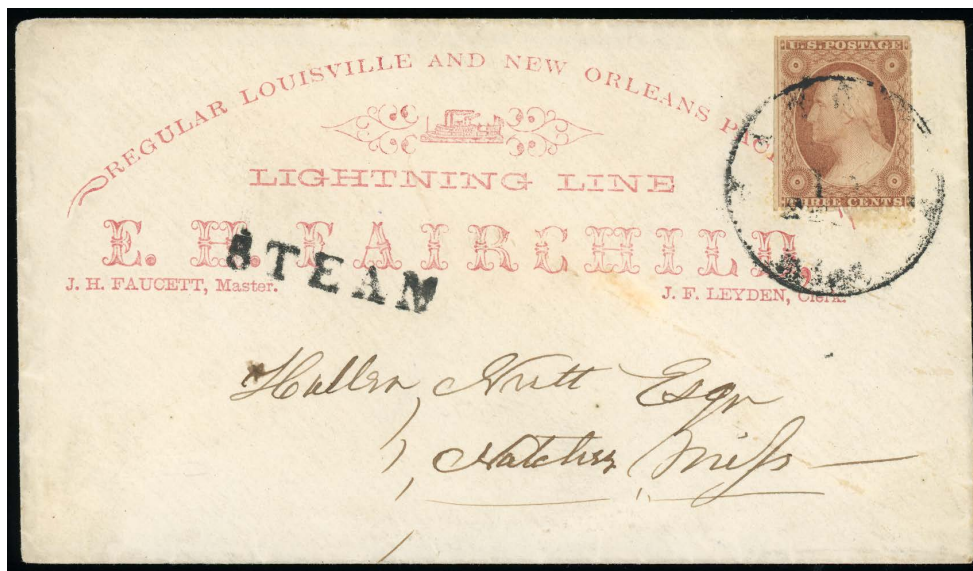 REGULAR LOUISVILLE AND NEW ORLEANS
U.S.POSTAGE
LIGHTNING LINE
THREE CENTS
E. H. FAIRCHILD,
STEAM
J. H. FAUCETT, Master.
J. F. LEYDEN, Clerk.
Haller Nutt Esqr
Natchez Miss